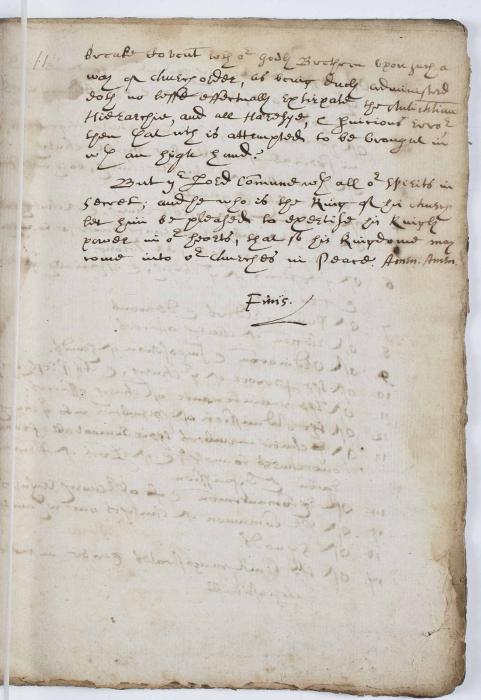 11
break Covent wth or Godly Brethern upon such a
way of church order, as being duely administred
doth no lesse effectually Extirpate the Antichtian
Hierarchie, and all Haresye, & pnicious Error
then that wch is attempted to be brought in
wth an high hand.
But ye Lord Comune wth all or Spirits in
secret; and he who is the King of his church
let him be pleased to exercise his Kingly
power in or hearts, that so his Kingdome may
come into or churches in Peace. Amen. Amen.
Finis.